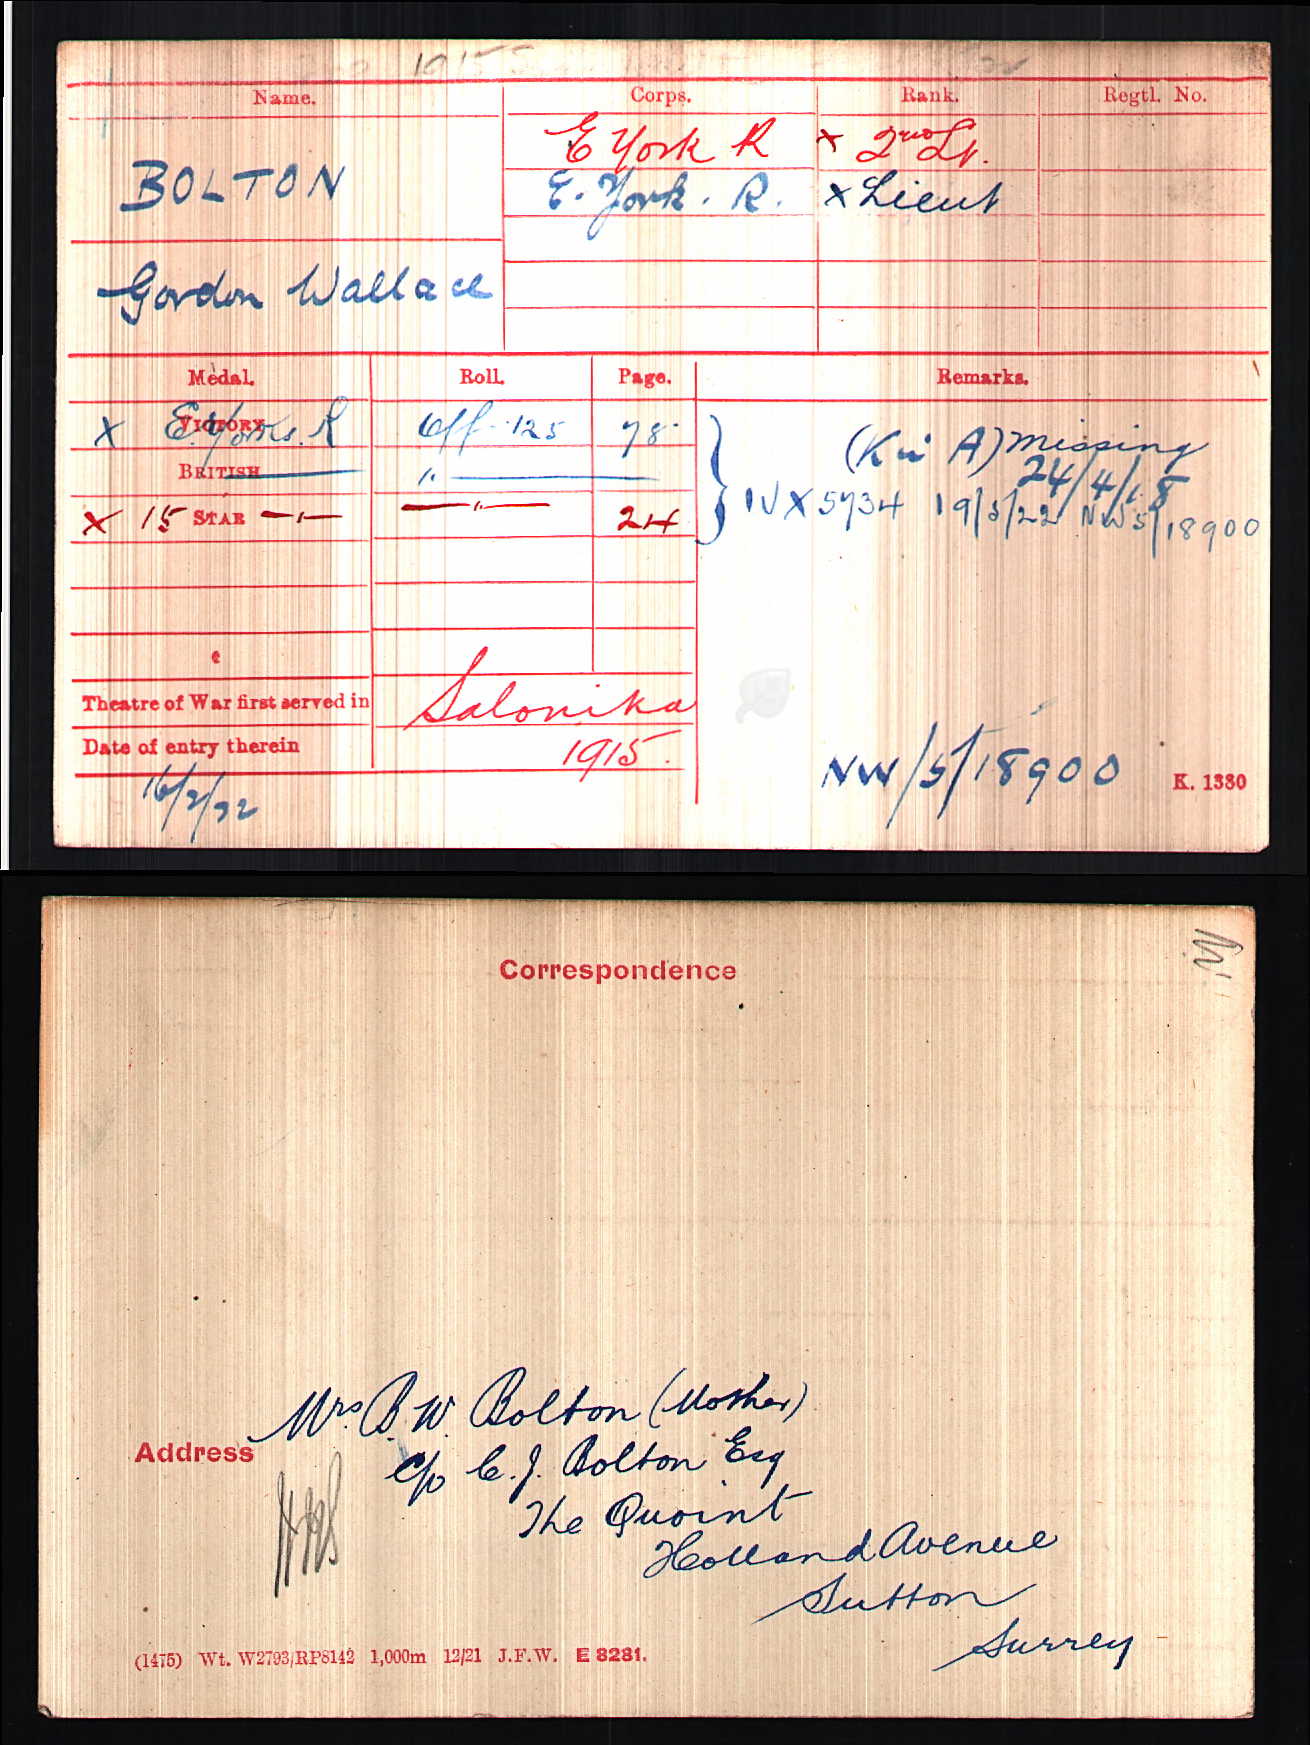 Name. Corps. Rank. Regtl. No.
E York R x 2nd Lt.
BOLTON E. York. R. x Lieut
Gordon Wallace
Medal. Roll. Page. Remarks.
x VICTORY E. Yorks. R Off 125 78 (K in A) Missing
24/4/18
BRITISH " IV X 5734 19/5/22 NW5/18900
x 15 STAR — " — — " — 24
Theatre of War first served in Salonika
Date of entry therein 1915.
16/2/22 NW/5/18900 K. 1380
Correspondence
Mrs B. W. Bolton (Mother)
Address c/o C. J. Bolton Esq
The Quoint
Holland Avenue
Sutton
Surrey
(1475) Wt. W2793/RP8142 1,000m 12/21 J.F.W. E 8281.